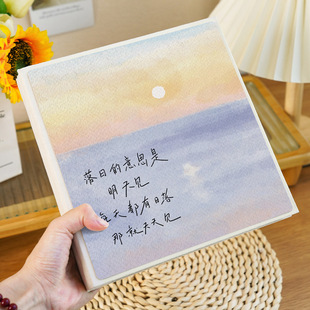 落日的意思是
明天见
每天都有日落
那就天天见